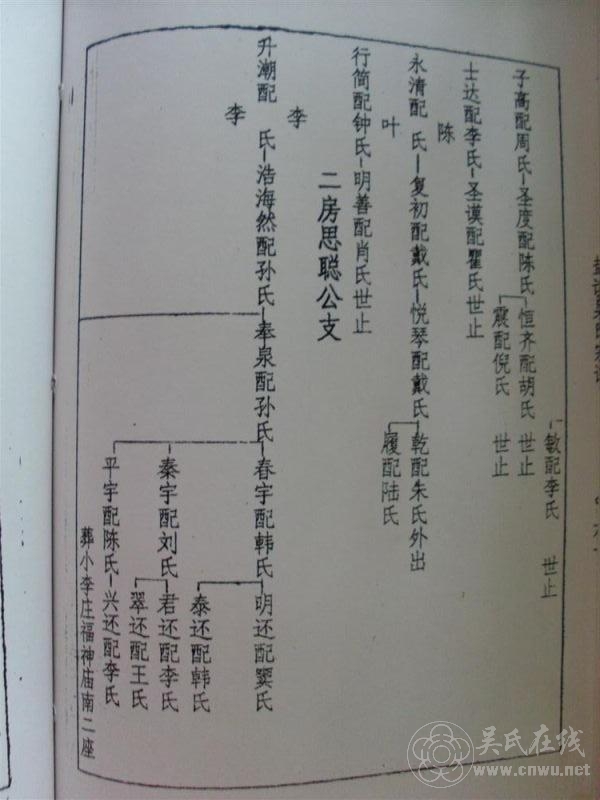 敏配李氏 世止
子高配周氏-圣度配陈氏 恒齐配胡氏 世止
震配倪氏 世止
士达配李氏-圣谟配瞿氏世止
陈
永清配 氏-复初配戴氏-悦琴配戴氏 乾配朱氏外出
叶
履配陆氏
行简配钟氏-明善配肖氏世止
二房思聪公支
李
升潮配 氏-浩海然配孙氏-奉泉配孙氏-春宇配韩氏-明还配窦氏
李
泰还配韩氏
秦宇配刘氏 君还配李氏
翠还配王氏
平宇配陈氏-兴还配李氏
葬小李庄福神庙南二座
吴氏在线
www.cnwu.net